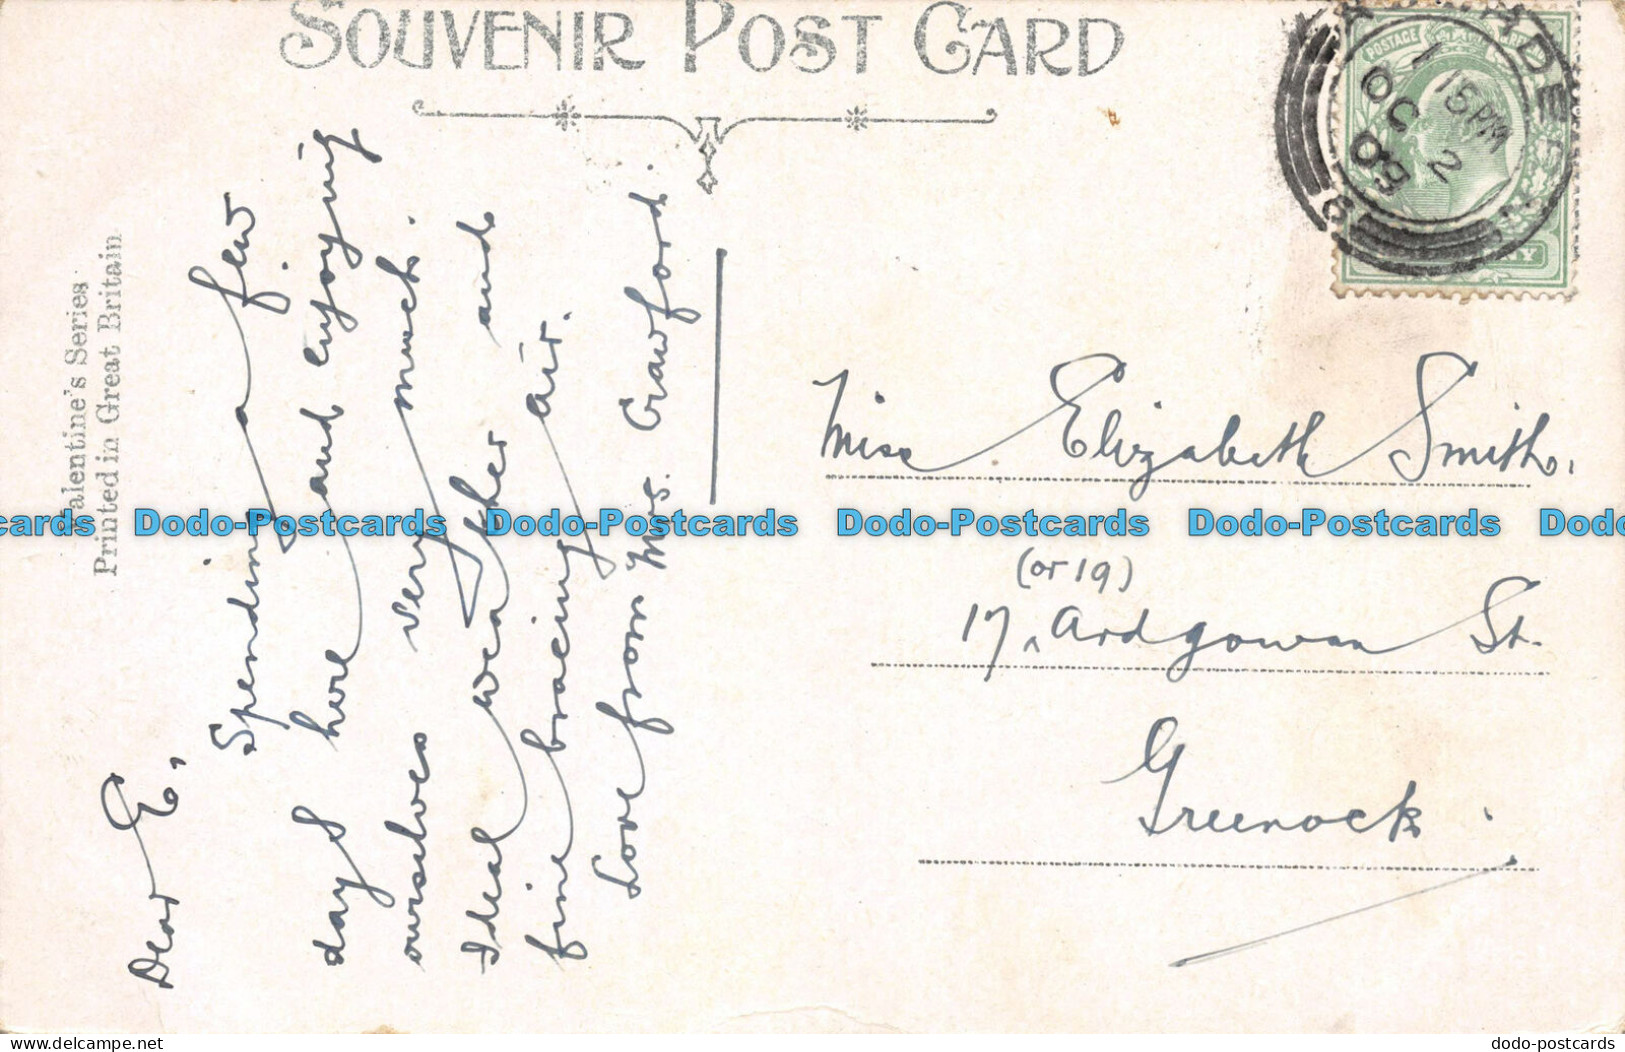 SOUVENIR POST CARD
Valentine's Series
Printed in Great Britain
Dear E,
Spending a few
days here and enjoying
ourselves very much.
Ideal weather and
fine bracing air.
Love from Mrs. Crawford.
POSTAGE
1 15 PM
OC 2
09
Miss Elizabeth Smith.
(or 19)
17, Ardgowan St.
Greenock.
Dodo-Postcards Dodo-Postcards Dodo-Postcards Dodo-Postcards
www.delcampe.net
dodo-postcards